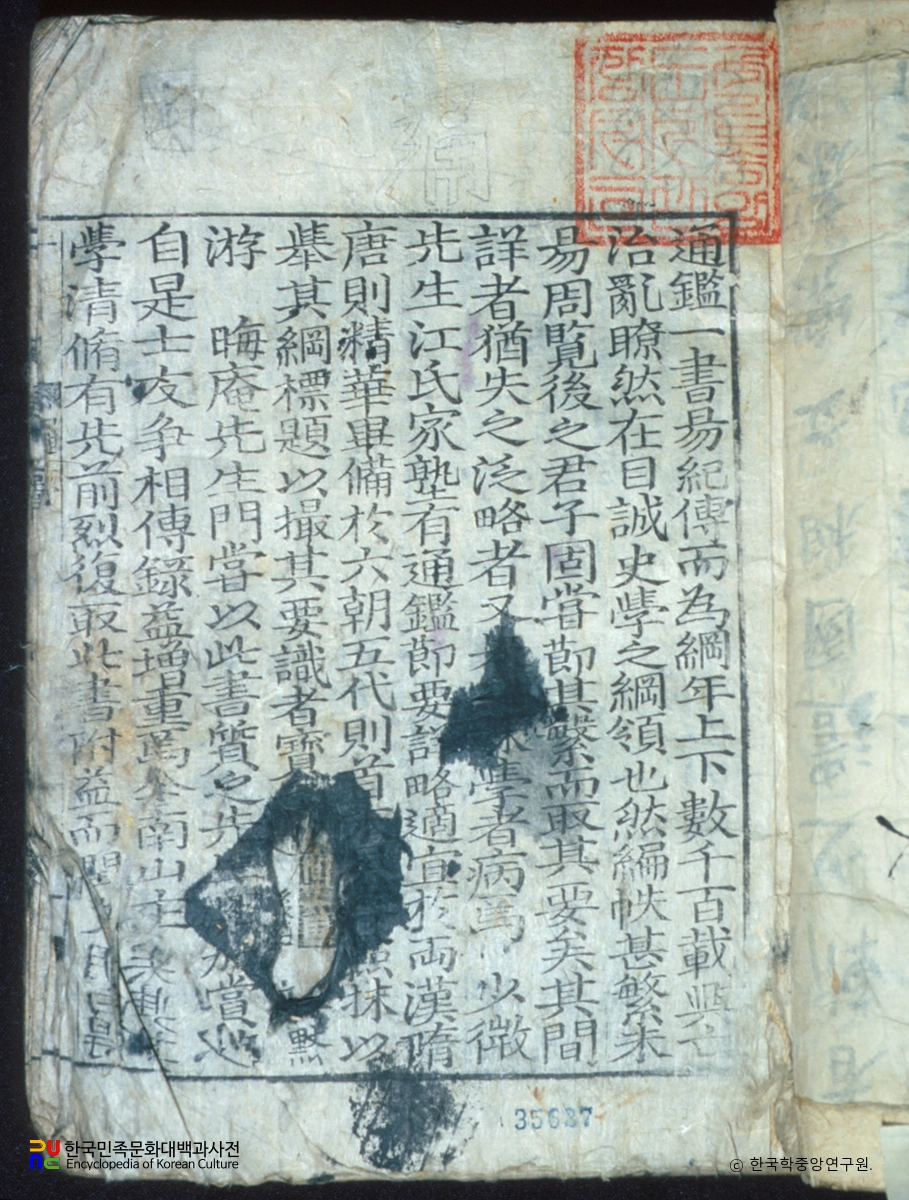 通鑑一書易紀傳而為綱年上下數千百載興亡
治亂瞭然在目誠史學之綱領也然編帙甚繁未
易周覽後之君子固嘗節其繁而取其要矣其間
詳者猶失之泛略者又學者病焉少微
先生江氏家塾有通鑑節要詳略適宜於兩漢隋
唐則精華畢備於六朝五代則首抹以
舉其綱標題以撮其要識者寶點
游 晦庵先生門嘗以此書質之先賞
自是士友争相傳錄益增重焉今南山主
學清脩有先前烈復取此書附益而
35687
한국민족문화대백과사전
Encyclopedia of Korean Culture
© 한국학중앙연구원.